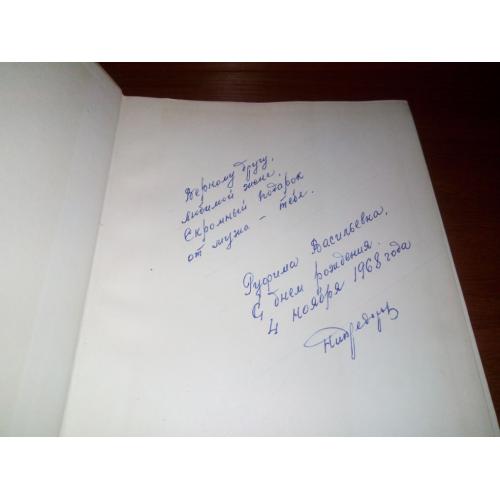 Верному другу,
любимой жене.
Скромный подарок
от мужа - тебе.
Руфима Васильевна.
С днем рождения.
4 ноября 1968 года